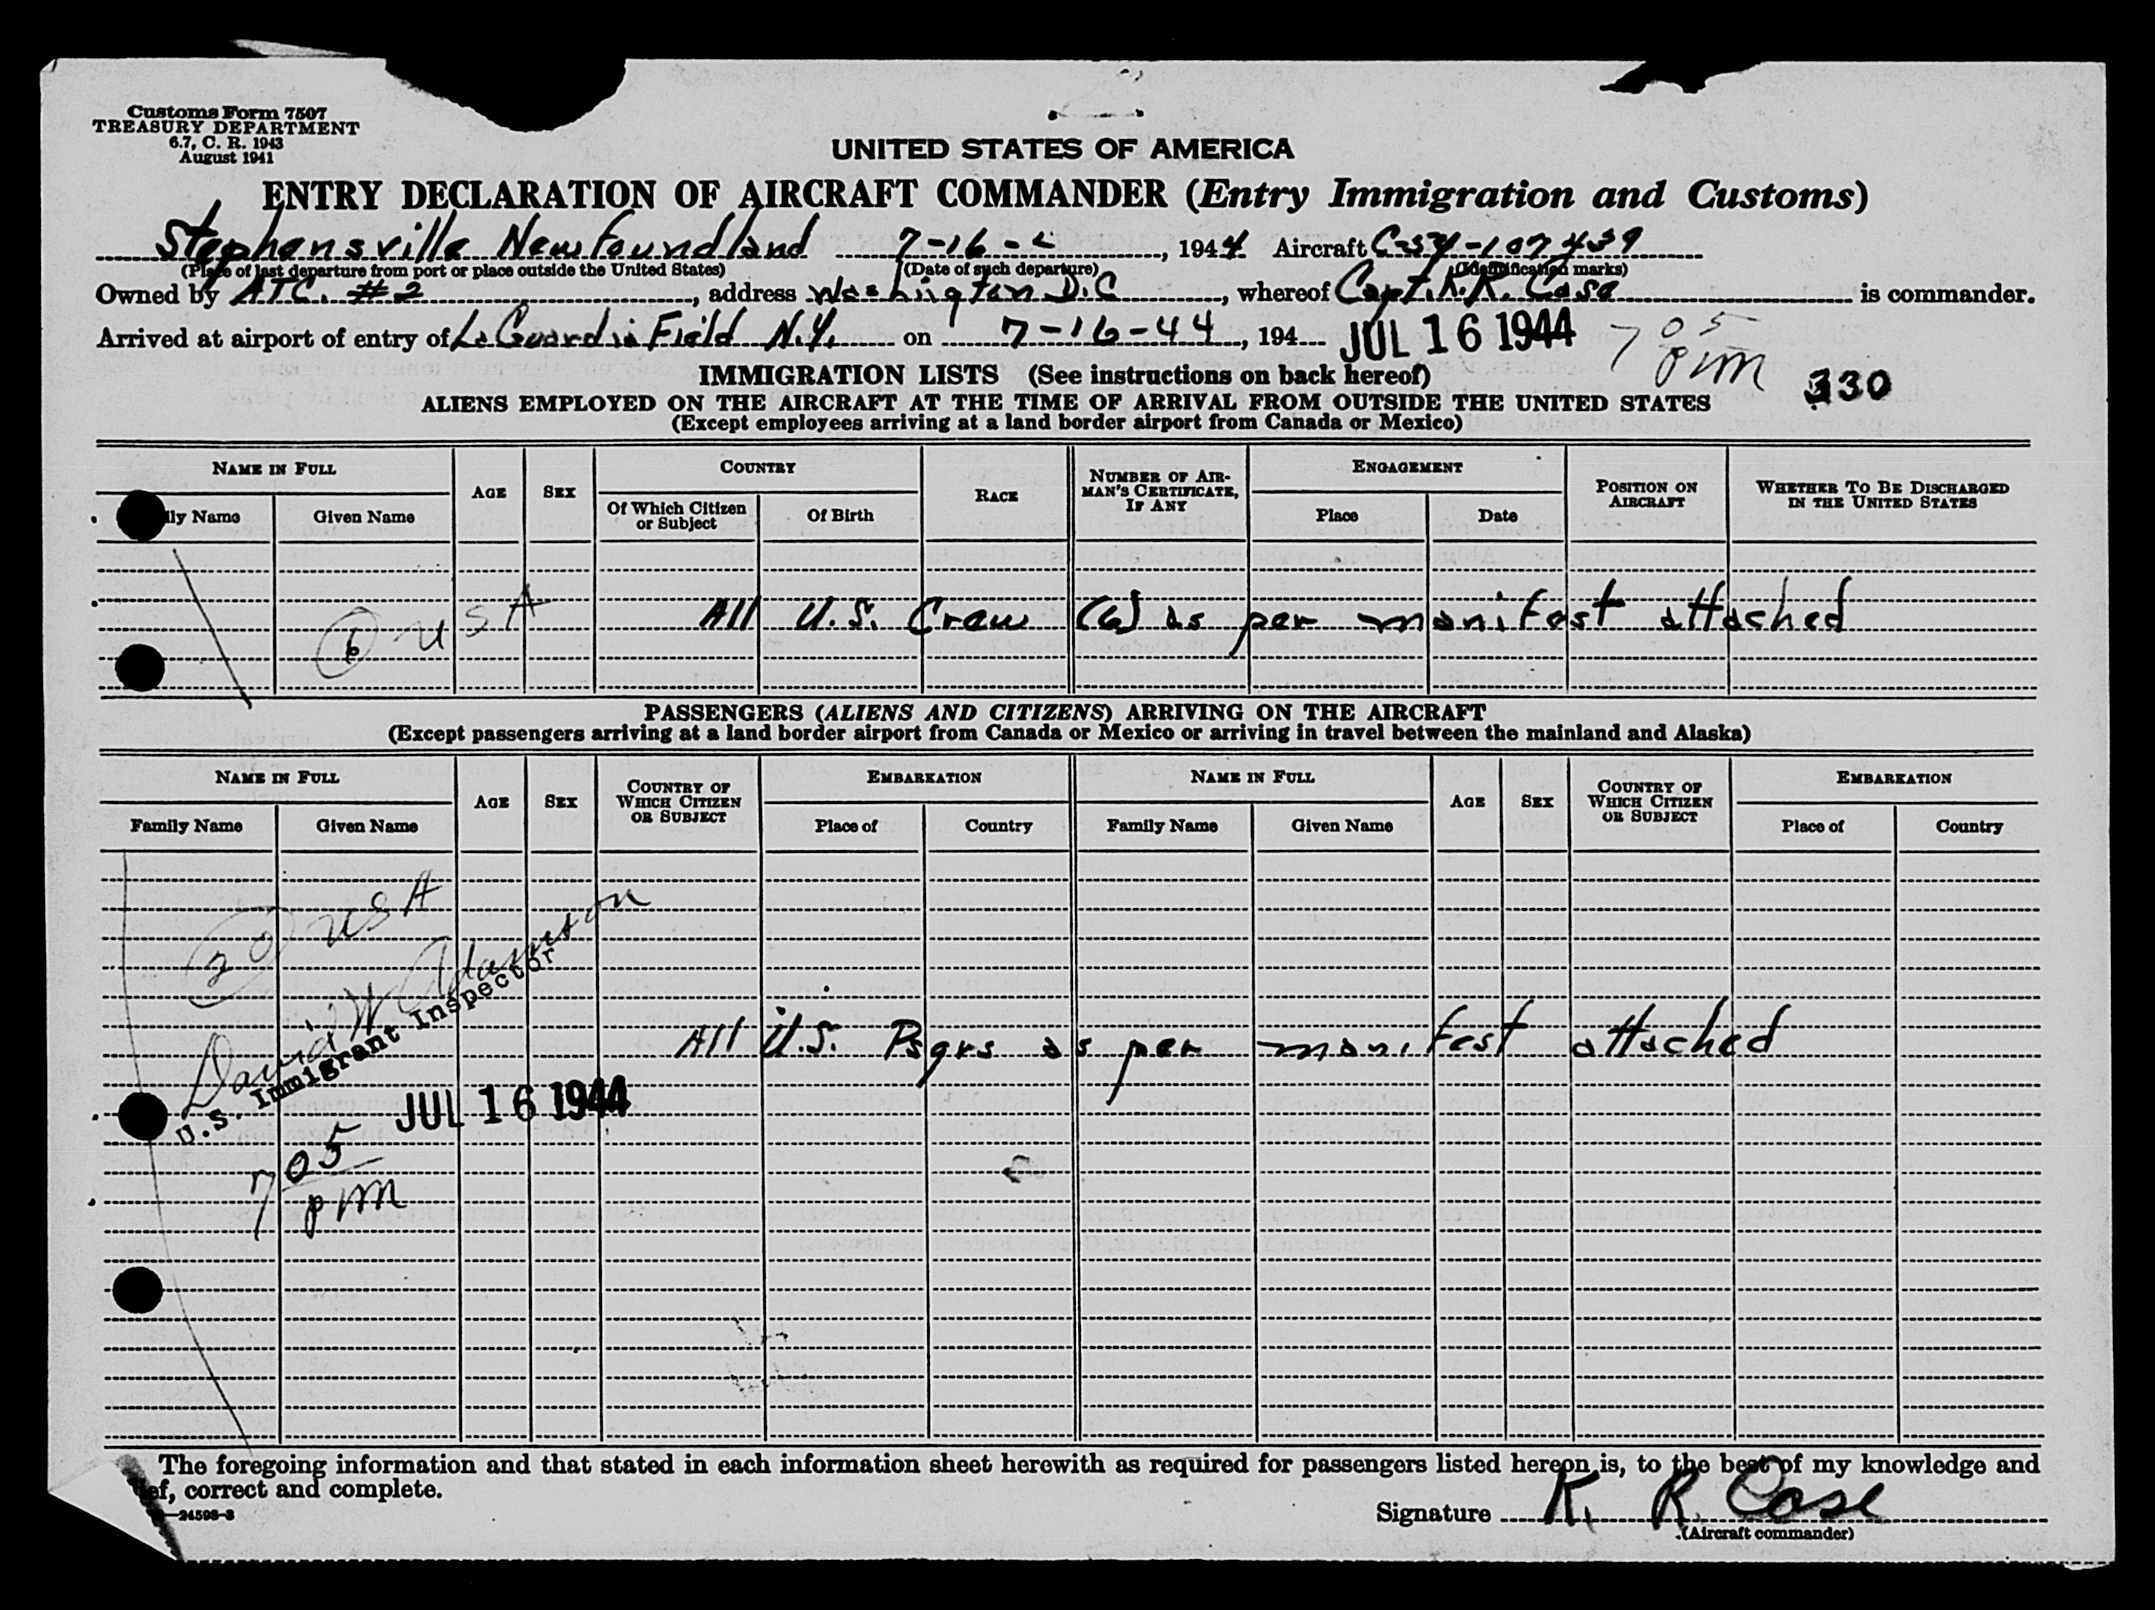 Customs Form 7507
TREASURY DEPARTMENT
6.7, C. R. 1943
August 1941
UNITED STATES OF AMERICA
ENTRY DECLARATION OF AIRCRAFT COMMANDER (Entry Immigration and Customs)
Stephensville Newfoundland 7-16-, 1944 Aircraft C-54-107439
(Place of last departure from port or place outside the United States) (Date of such departure) (Identification marks)
Owned by ATC. #2, address Washington D.C, whereof Capt. K.R. Case is commander.
Arrived at airport of entry of La Guardia Field N.Y. on 7-16-44, 194 JUL 16 1944 7 05 pm
IMMIGRATION LISTS (See instructions on back hereof) 330
ALIENS EMPLOYED ON THE AIRCRAFT AT THE TIME OF ARRIVAL FROM OUTSIDE THE UNITED STATES
(Except employees arriving at a land border airport from Canada or Mexico)
NAME IN FULL AGE SEX COUNTRY RACE NUMBER OF AIRMAN'S CERTIFICATE, IF ANY ENGAGEMENT POSITION ON AIRCRAFT WHETHER TO BE DISCHARGED IN THE UNITED STATES
ly Name Given Name Of Which Citizen or Subject Of Birth Place Date
6 USA All U.S. Crew (6) as per manifest attached
PASSENGERS (ALIENS AND CITIZENS) ARRIVING ON THE AIRCRAFT
(Except passengers arriving at a land border airport from Canada or Mexico or arriving in travel between the mainland and Alaska)
NAME IN FULL AGE SEX COUNTRY OF WHICH CITIZEN OR SUBJECT EMBARKATION NAME IN FULL AGE SEX COUNTRY OF WHICH CITIZEN OR SUBJECT EMBARKATION
Family Name Given Name Place of Country Family Name Given Name Place of Country
20 USA
David W Adamson
U.S. Immigrant Inspector
All U.S. Psgrs as per manifest attached
JUL 16 1944
7 05 pm
The foregoing information and that stated in each information sheet herewith as required for passengers listed hereon is, to the best of my knowledge and
ef, correct and complete.
24598-3
Signature K. R. Case
(Aircraft commander)